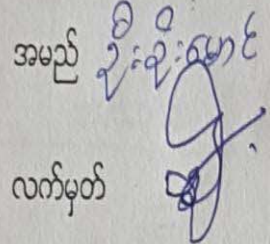 အမည် ဦးစိုးမောင်
လက်မှတ်